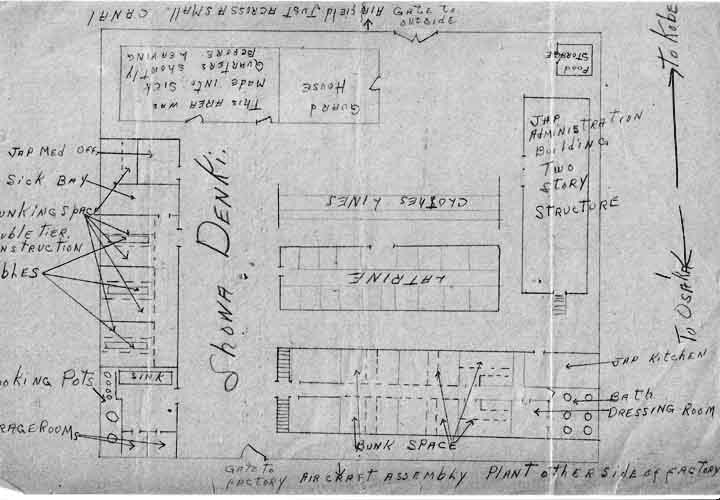 AIRFIELD JUST ACROSS A SMALL CANAL
GATE TO
OUTSIDE
THIS AREA WAS
MADE INTO SICK
QUARTERS SHORTLY
BEFORE LEAVING
GUARD
HOUSE
FOOD
STORAGE
TO KOBE
JAP
ADMINISTRATION
BUILDING
TWO
STORY
STRUCTURE
JAP MED OFF.
SICK BAY
UNKING SPACE
UBLE TIER
NSTRUCTION
BLES
SHOWA DENKI.
CLOTHES LINES
LATRINE
TO OSAKA
OKING POTS
SINK
RAGE ROOMS
JAP KITCHEN
BATH
DRESSING ROOM
BUNK SPACE
GATE TO
FACTORY
AIRCRAFT ASSEMBLY PLANT OTHER SIDE OF FACTORY